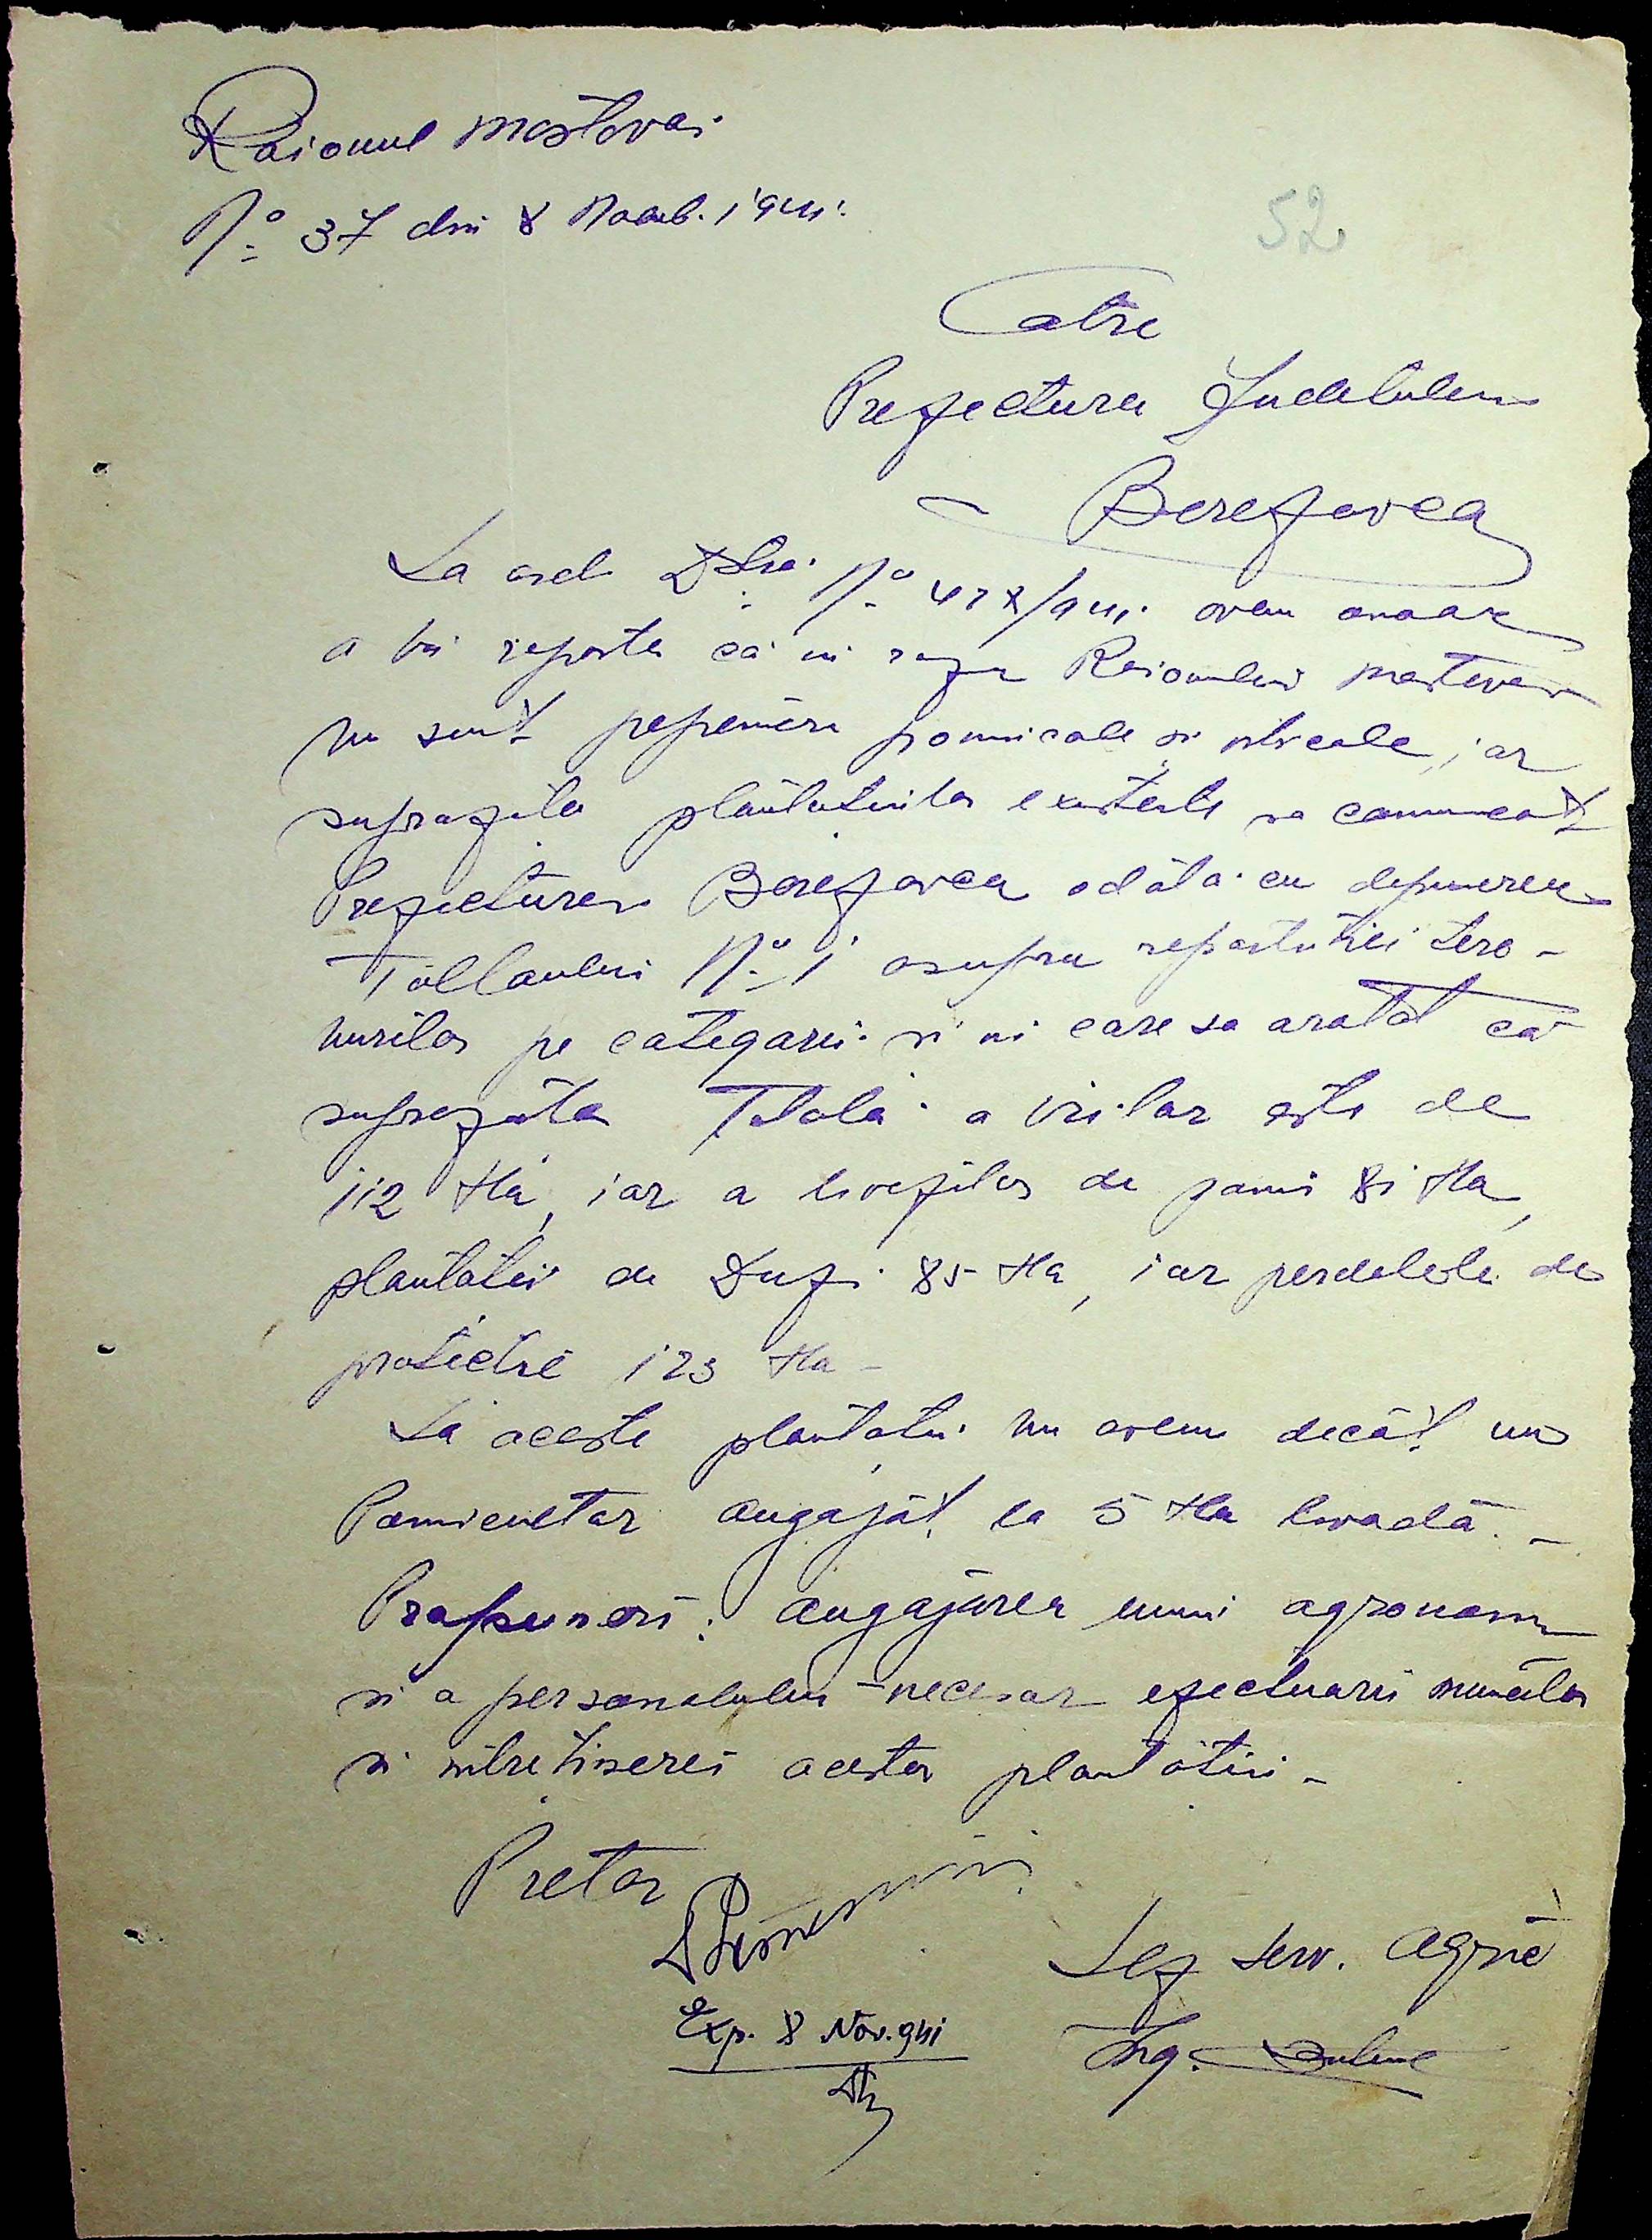 Raionul Mostovoi
No 37 din 8 Noemb. 1941.
52
Catre
Prefectura Judetului
Berezovca
La ord. Dvs. No 478/941. avem onoare
a vă raporta că in raza Raionului Mostovoi
nu sunt pepeniere pomicole si viticole, iar
suprafata plantatiilor existente sa comunicat
Prefecturei Berezovca odată cu depunerea
Tabloului No 1 asupra repartitiei tere-
nurilor pe categorii si in care sa aratat că
suprafata Totală a viilor este de
112 Ha, iar a livezilor de pomi 81 Ha,
plantatii de Duzi 85 Ha, iar perdelele de
protectie 123 Ha -
La aceste plantatii nu avem decât un
Pomicultor angajat la 5 Ha livadă. -
Propuneri: angajarea unui agronom
si a personalului necesar efectuarii muncilor
si intretinerei acestor plantatiii -
Pretor
Sef serv. Agric
Exp. 8 Nov. 941
Ing.